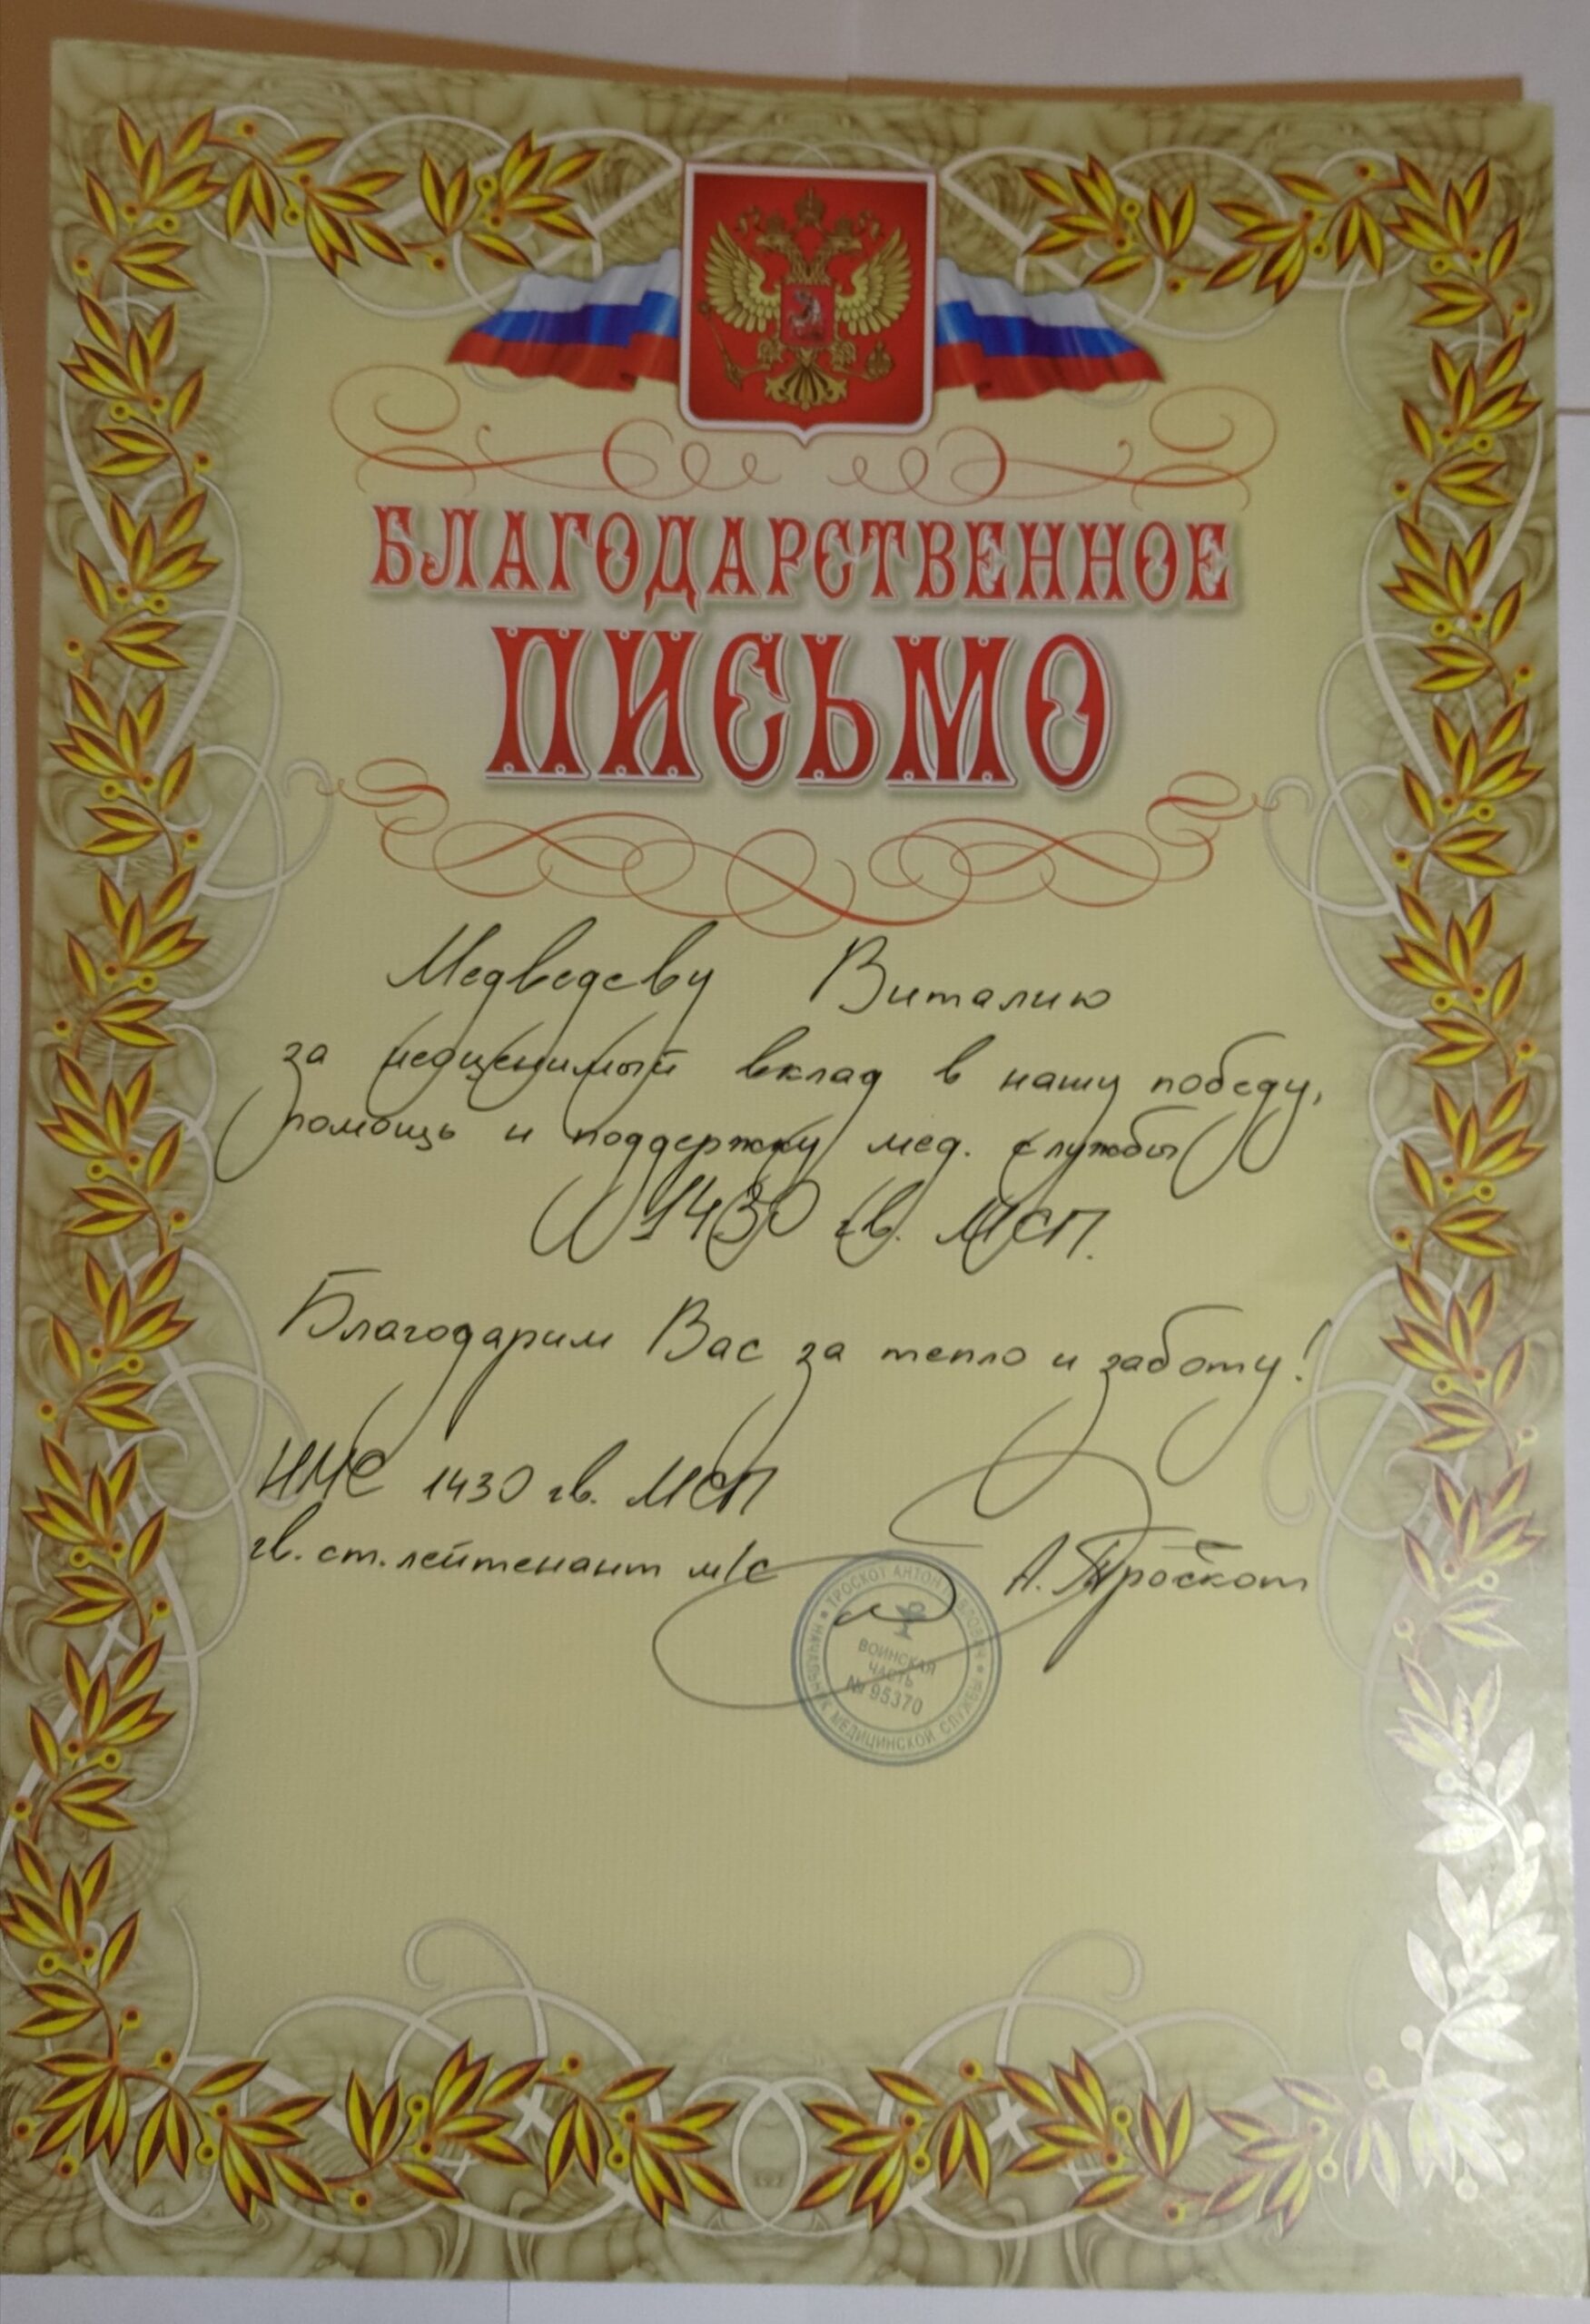 БЛАГОДАРСТВЕННОЕ
ПИСЬМО
Медведеву Виталию
за неоценимый вклад в нашу победу,
помощь и поддержку мед. службы
1430 гв. МСП.
Благодарим Вас за тепло и заботу!
НМС 1430 гв. МСП
гв. ст. лейтенант м/с А. Проскот
ТРОСКОТ АНТОН
НАЧАЛЬНИК МЕДИЦИНСКОЙ СЛУЖБЫ
ВОИНСКАЯ
ЧАСТЬ
№ 95370